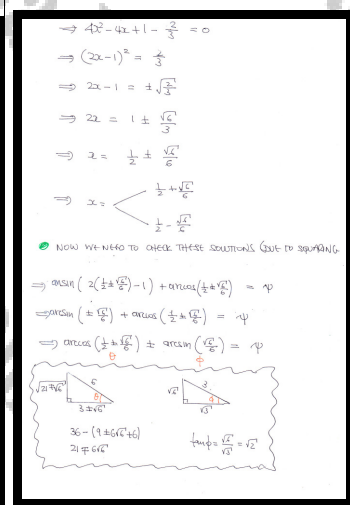 ⇒ 4x² - 4x + 1 - 2/3 = 0
⇒ (2x-1)² = 2/3
⇒ 2x - 1 = ±√(2/3)
⇒ 2x = 1 ± √6/3
⇒ x = 1/2 ± √6/6
⇒ x = < 1/2 + √6/6
1/2 - √6/6
NOW WE NEED TO CHECK THESE SOLUTIONS (DUE TO SQUARING
⇒ arcsin(2(1/2 ± √6/6) - 1) + arccos(1/2 ± √6/6) = ψ
⇒ arcsin(± √6/3) + arccos(1/2 ± √6/6) = ψ
⇒ arccos(1/2 ± √6/6) ± arcsin(√6/3) = ψ
θ φ
√(21∓6√6) 6 θ 3±√6
√6 3 φ √3
36 - (9 ± 6√6 + 6)
21 ∓ 6√6
tanφ = √6/√3 = √2